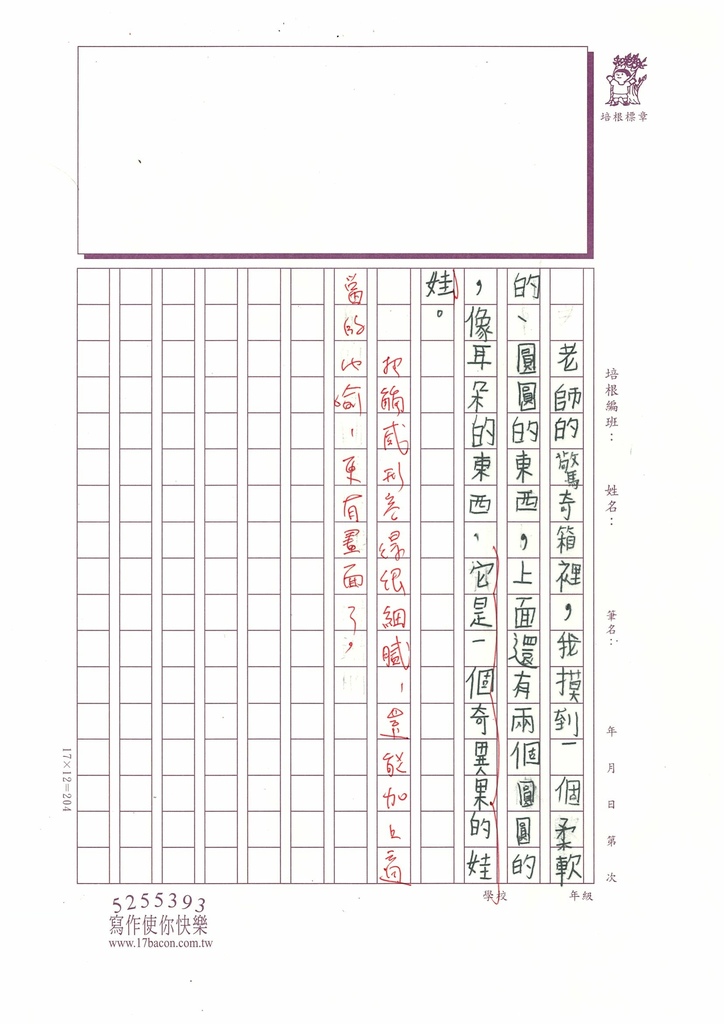 培根標章
培根編班：
姓名：
筆名：
年 月 日 第 次
學校 年級
老師的驚奇箱裡，我摸到一個柔軟
的、圓圓的東西，上面還有兩個圓圓的
，像耳朵的東西、它是一個奇異果的娃
娃。
把觸感形容得很細膩，還能加上適
當的比喻，更有畫面了，
17×12=204
5255393
寫作使你快樂
www.17bacon.com.tw